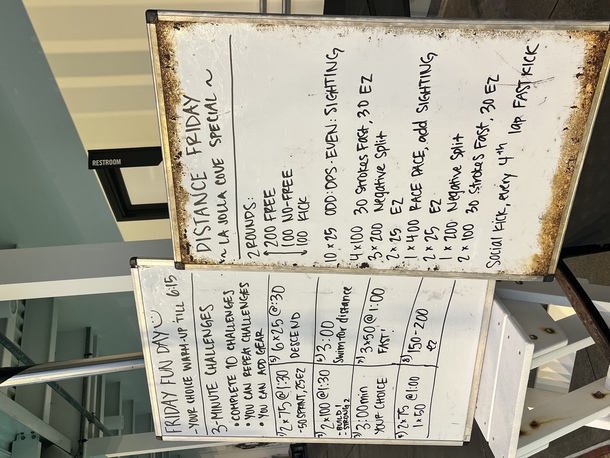 RESTROOM
FRIDAY FUN DAY
- YOUR CHOICE WARM-UP TILL 6:15
3-MINUTE CHALLENGES
• COMPLETE 10 CHALLENGES
• YOU CAN REPEAT CHALLENGES
• YOU CAN ADD GEAR
1) 2 x 75 @ 1:30
- 50 SPRINT, 25 EZ
2) 2 x 100 @ 1:30
- BUILD 1
STRONG 2
3) 3:00 min
YOUR CHOICE
4) 2 x 75 @ 1:00
1 x 50
5) 6 x 25 @ :30
DESCEND
6) 3:00
Swim for distance
7) 3 x 50 @ 1:00
FAST!
8) 150-200
EZ
DISTANCE FRIDAY
~ LA JOLLA COVE SPECIAL ~
2 ROUNDS:
200 FREE
100 NO-FREE
100 KICK
10 x 25 ODD: DPS - EVEN: SIGHTING
4 x 100 30 Strokes Fast, 30 EZ
3 x 200 Negative Split
2 x 25 EZ
1 x 400 RACE PACE, add SIGHTING
2 x 25 EZ
1 x 200 Negative Split
2 x 100 30 Strokes Fast, 30 EZ
Social Kick, every 4th lap FAST KICK